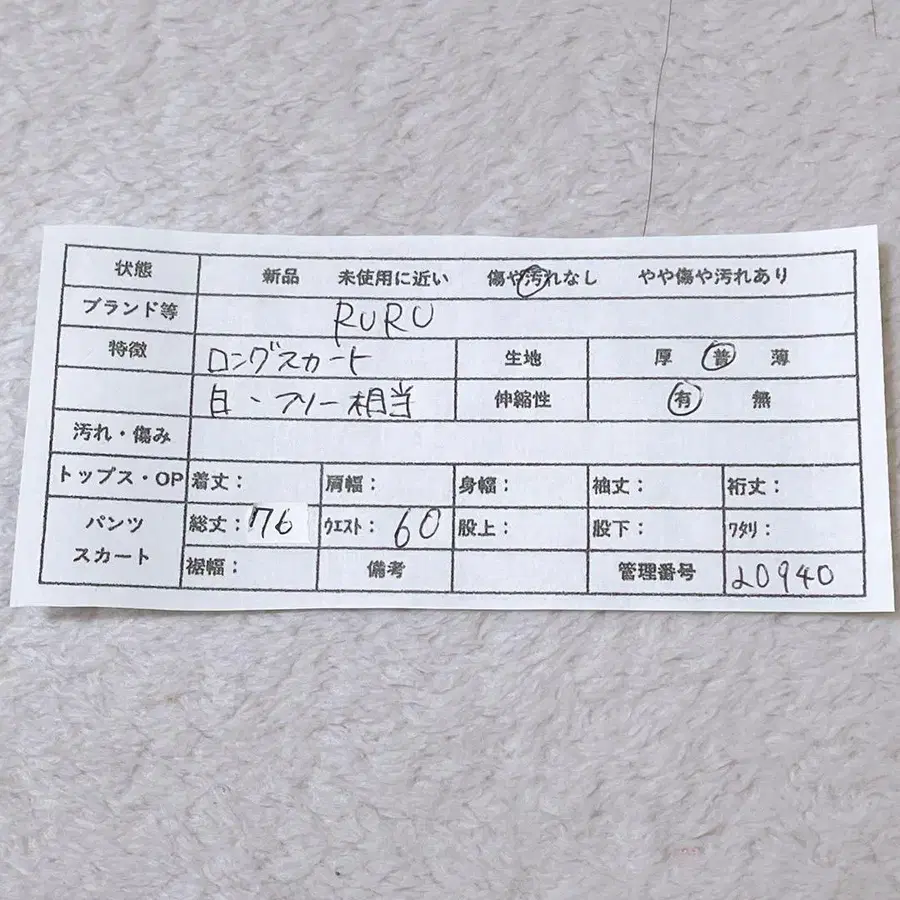 状態 新品 未使用に近い 傷や汚れなし やや傷や汚れあり
ブランド等 RURU
特徴 ロングスカート 生地 厚 普 薄
白・フリー相当 伸縮性 有 無
汚れ・傷み
トップス・OP 着丈： 肩幅： 身幅： 袖丈： 裄丈：
パンツ スカート 総丈：76 ウエスト：60 股上： 股下： ワタリ：
裾幅： 備考 管理番号 20940